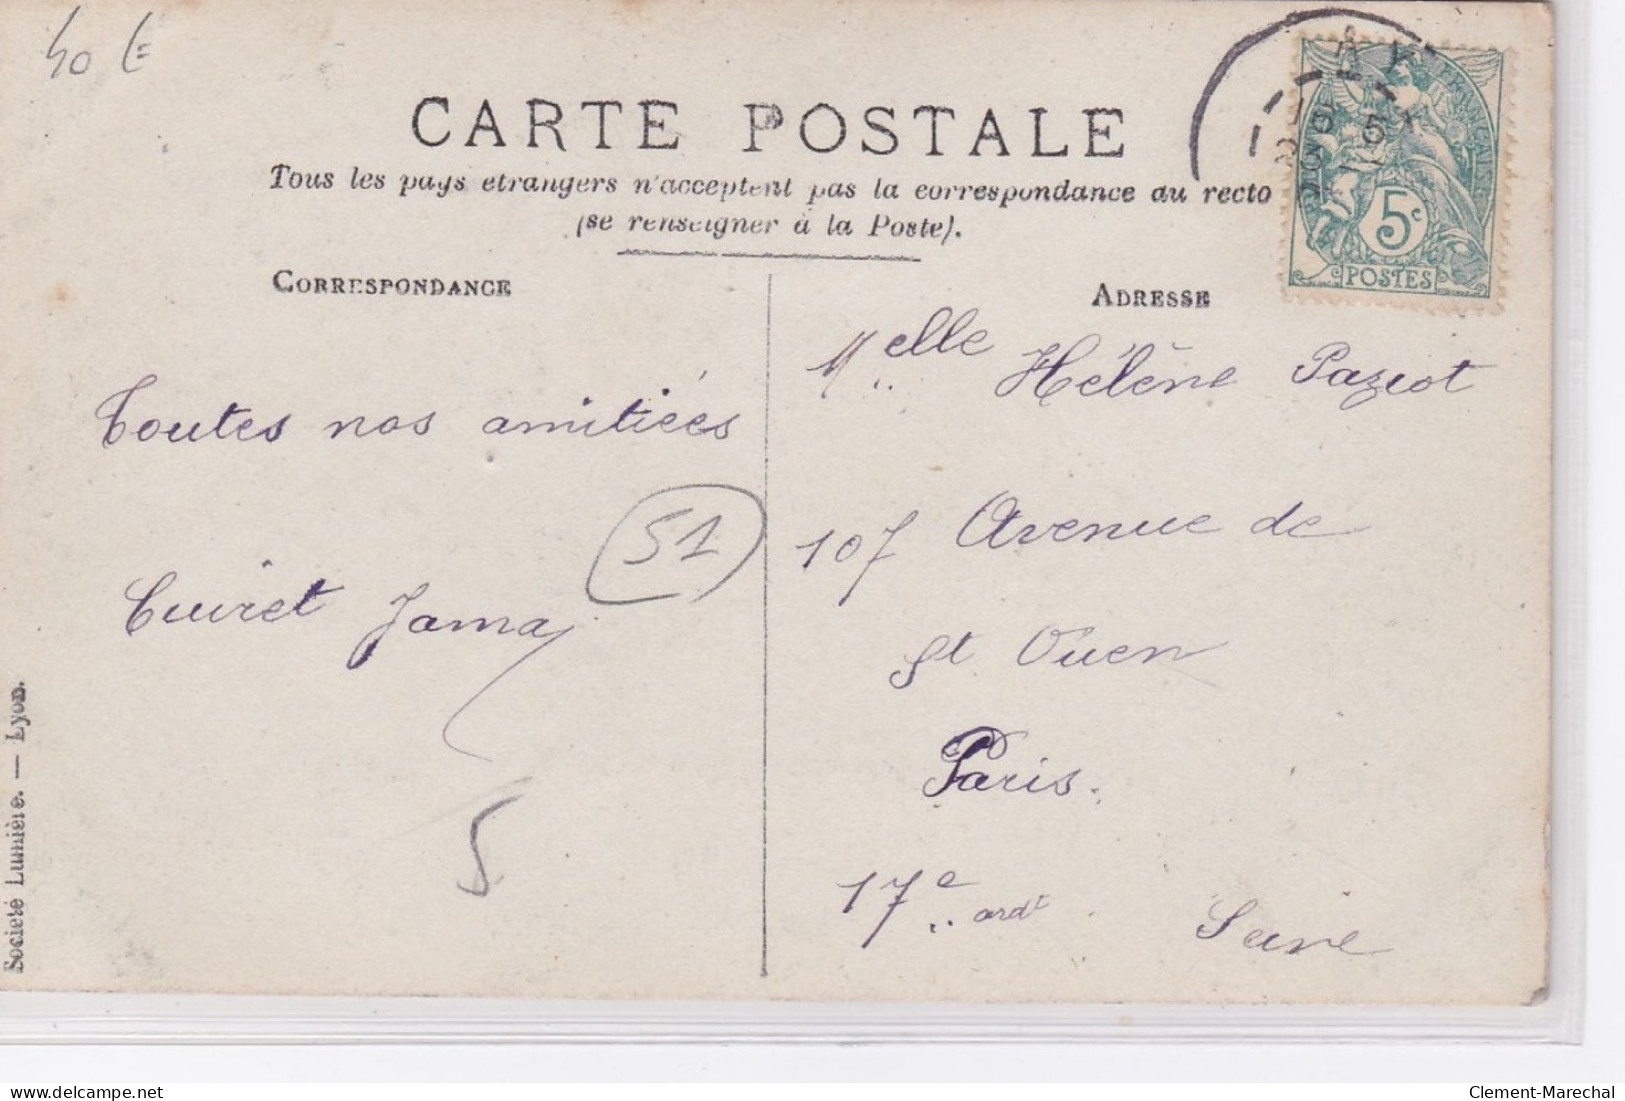 40 €
CARTE POSTALE
Tous les pays etrangers n'acceptent pas la correspondance au recto
(se renseigner à la Poste).
CORRESPONDANCE
ADRESSE
AY
5
FRANÇAISE
5c
POSTES
Toutes nos amitiées
51
Cuiret Jama
5
Melle Hélène Paziot
107 Avenue de
St Ouen
Paris.
17e ardt
Seine
Societé Lumière. — Lyon.
www.delcampe.net
Clement-Marechal